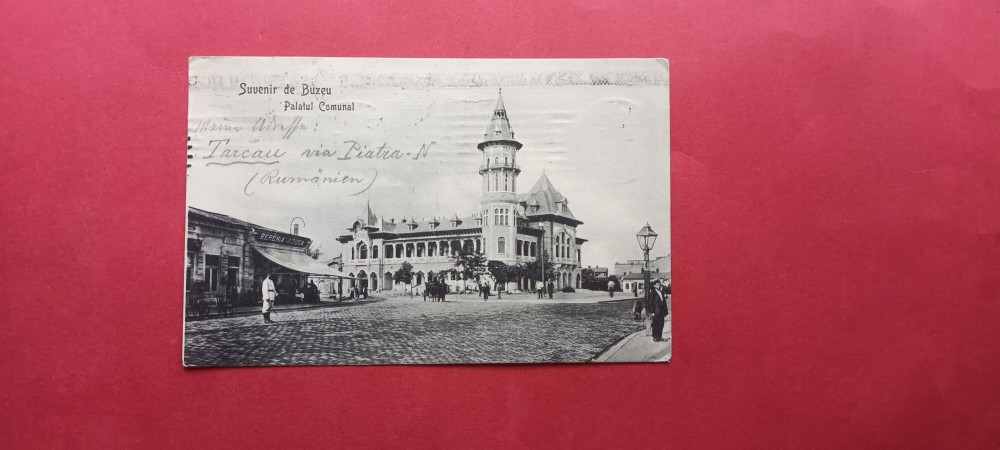 Suvenir de Buzeu
Palatul Comunal
Meine Adresse:
Tarcău via Piatra-N
(Rumänien)
BERĂRIA